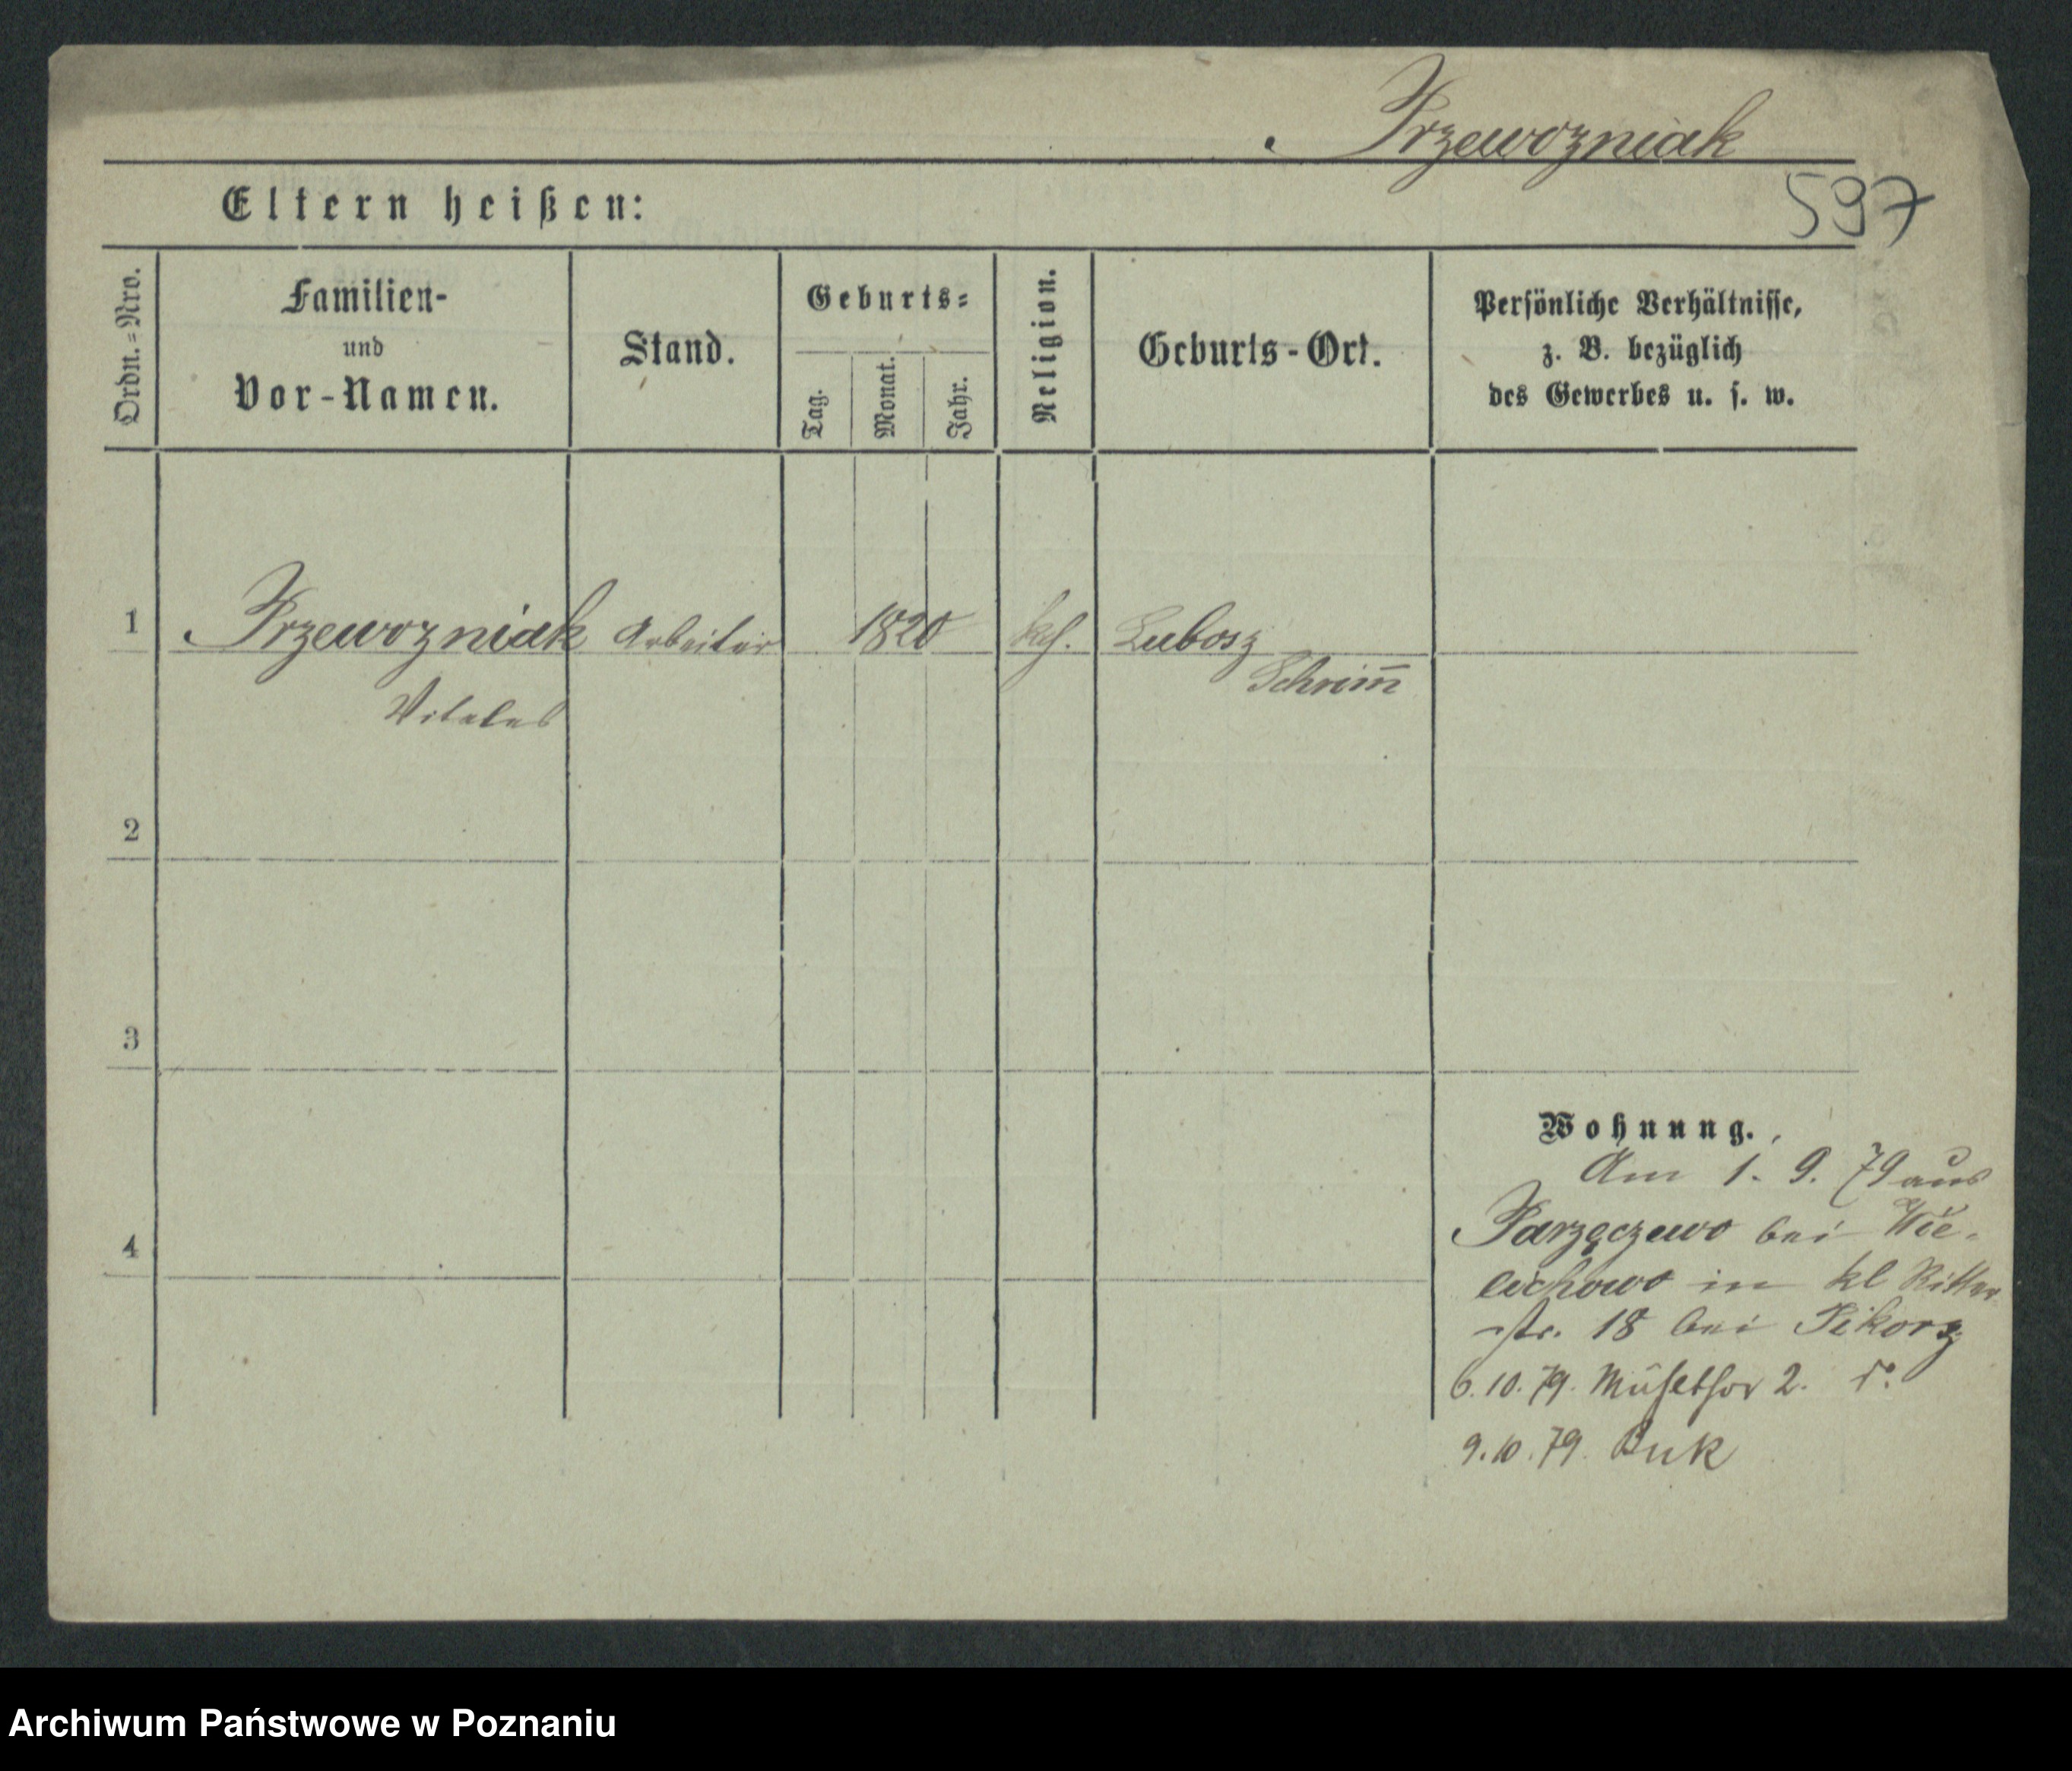 Przewozniak
597
Eltern heißen:
Ordn.=Nro.
Familien-
und
Vor-Namen.
Stand.
Geburts=
Tag.
Monat.
Jahr.
Religion.
Geburts-Ort.
Persönliche Verhältnisse,
z. B. bezüglich
des Gewerbes u. s. w.
1
Przewozniak Arbeiter 1820 kth. Lubosz
Schrim̅
2
3
4
Wohnung.
Am 1. 9. 79 aus
Parzęczewo bei Wie-
lichowo in kl Ritter
str. 18 bei Sikorz
6.10.79. 2.
9.10.79. Buk
Archiwum Państwowe w Poznaniu